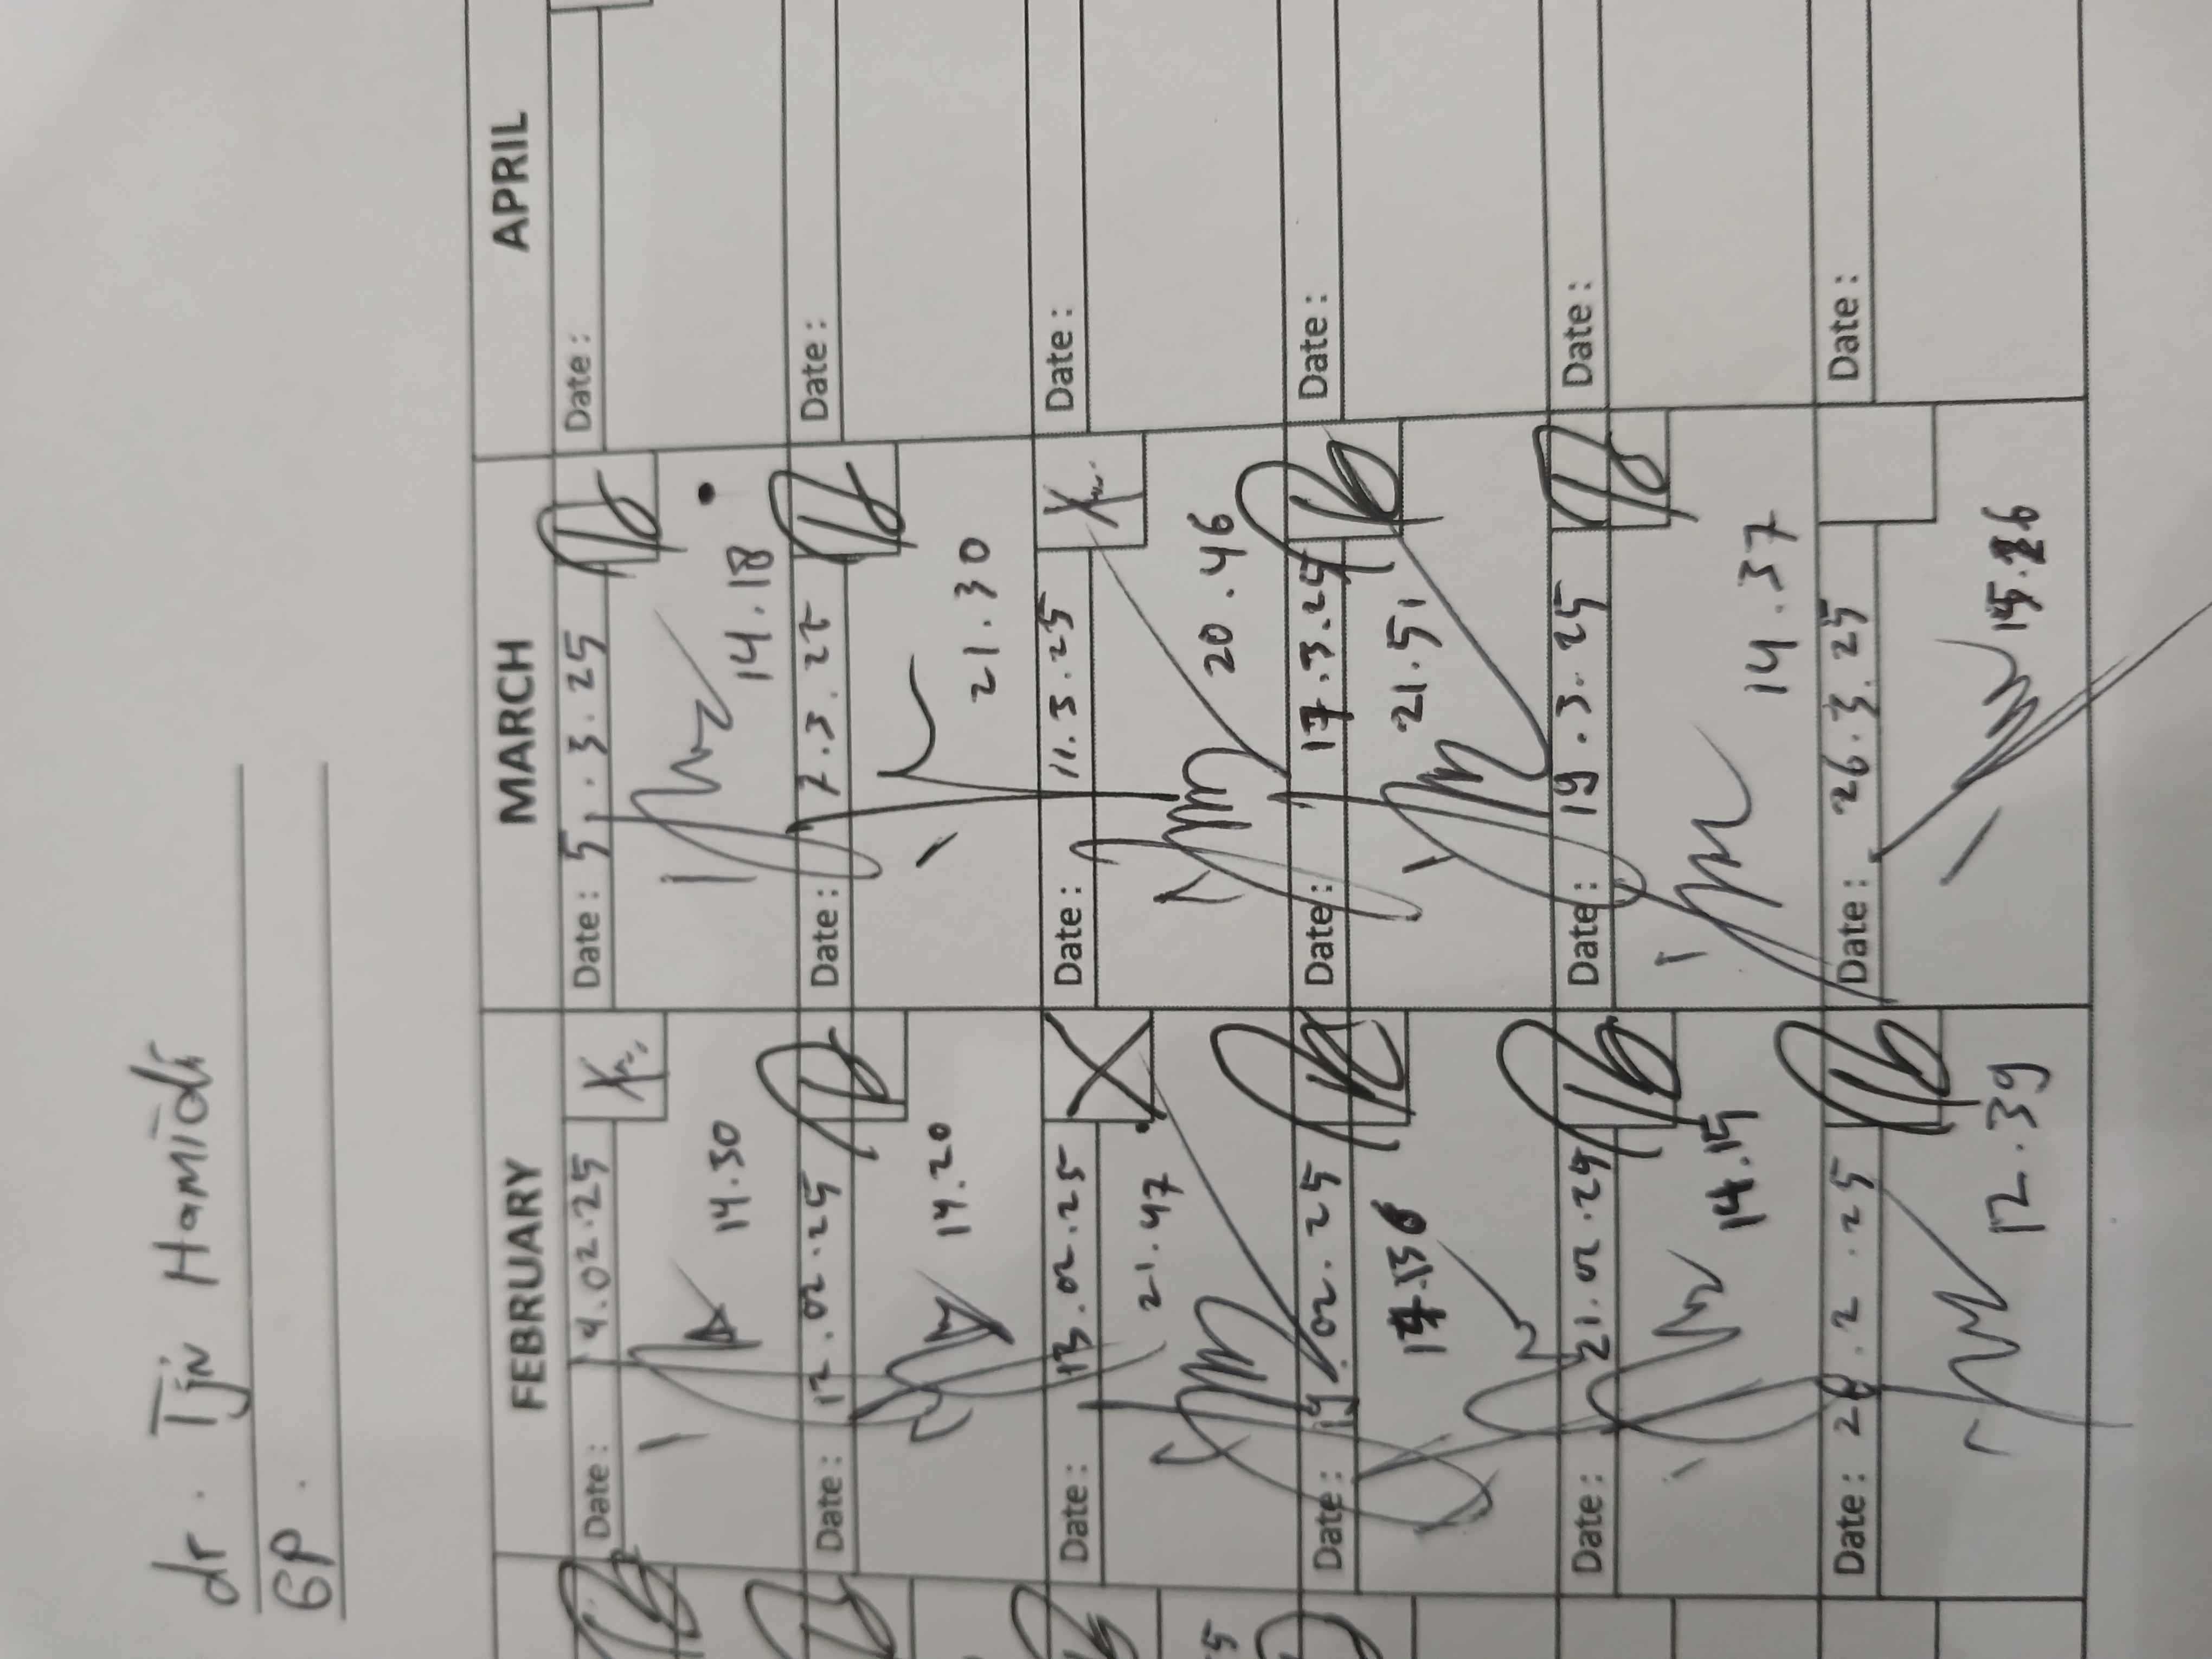 dr. Tjin Hamidi
GP.
FEBRUARY MARCH APRIL
Date: 4.02.25 Date: 5.3.25 Date:
14.30 14.18
Date: 12.02.25 Date: 7.3.25 Date:
14.20 21.30
Date: 13.02.25 Date: 11.3.25 Date:
21.47 20.46
Date: .02.25 Date: 17.3.25 Date:
21.51
Date: 21.02.25 Date: 19.3.25 Date:
14.15 14.37
Date: 28.2.25 Date: 26.3.25 Date:
12.39